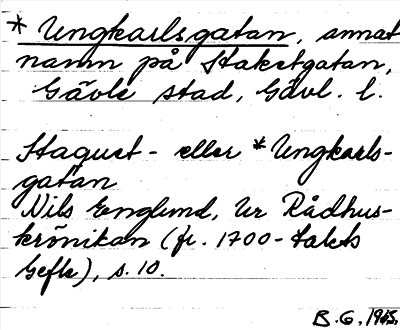 * Ungkarlsgatan, annat
namn på Staketgatan,
Gävle stad, Gävl. l.
Staquet- eller * Ungkarls-
gatan
Nils Englund, Ur Rådhus-
krönikan (fr. 1700-talets
Gefle), s. 10.
B. G., 1945.